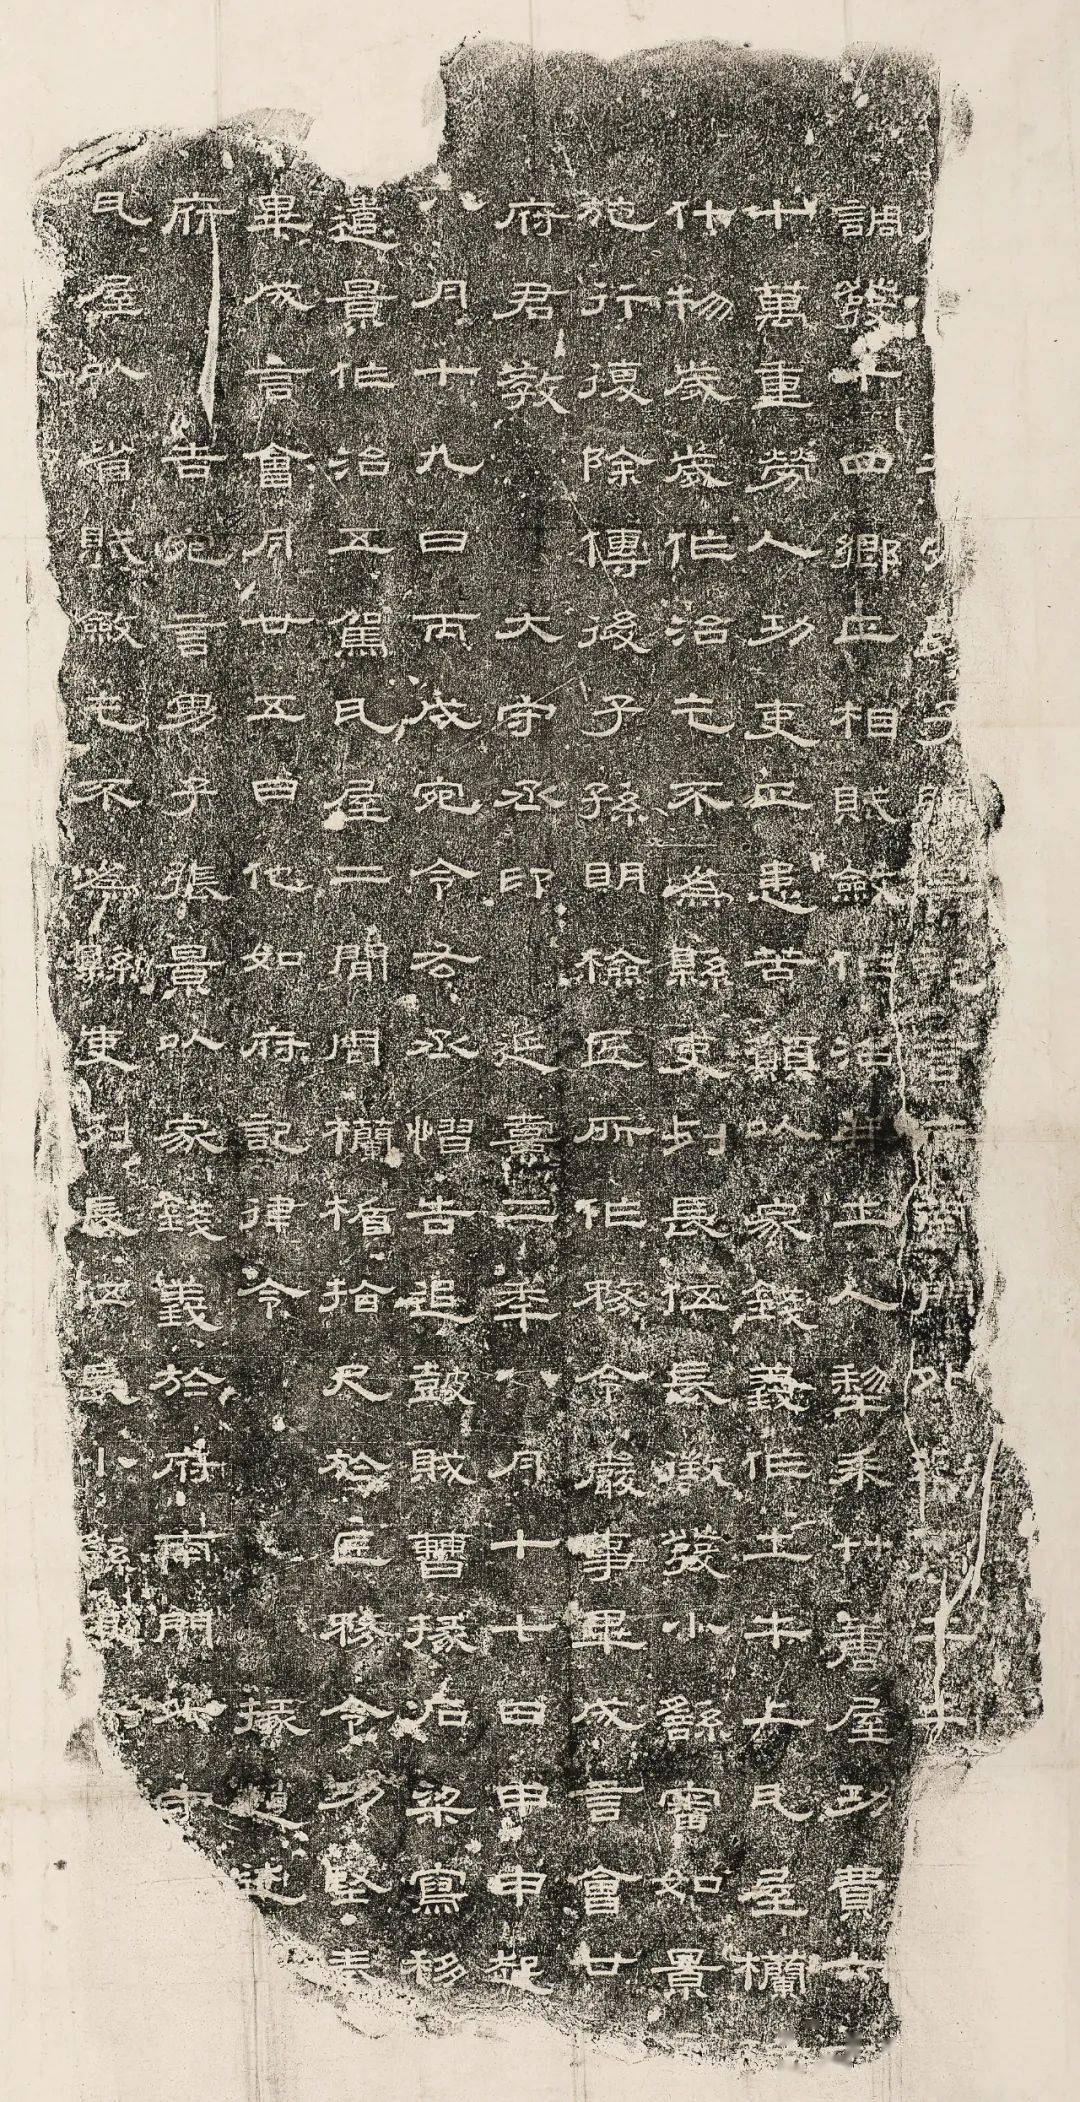 府告宛男子張景記言府南門外勸農土牛
調發十四鄉正相賦斂作治并土人犁耒艸蓐屋功費六七
十萬重勞人功吏正患苦願以家錢義作土牛上瓦屋欄
什物歲歲作治乞不為縣吏列長伍長徵發小繇審如景
施行復除傳後子孫明檢匠所作務令嚴事畢成言會廿
府君教大守丞印延熹二年八月十七日甲申起
八月十九日丙戌宛令右丞慴告追鼓賊曹掾石梁寫移
遣景作治五駕瓦屋二間周欄楯拾尺於匠務令功堅奉
畢成言會月廿五日他如府記律令掾趙述
府告宛言男子張景以家錢義於府南門外守
瓦屋以省賦斂乞不為縣吏列長伍長小繇